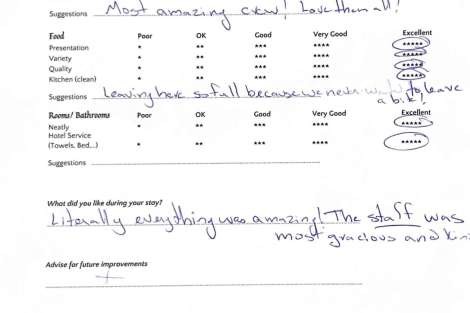 Suggestions Most amazing crew! Love them all!
Food Poor OK Good Very Good Excellent
Presentation * ** *** **** *****
Variety * ** *** **** *****
Quality * ** *** **** *****
Kitchen (clean) * ** *** **** *****
Suggestions Leaving here so full because we never to leave
a bite!
Rooms/ Bathrooms Poor OK Good Very Good Excellent
Neatly * ** *** **** *****
Hotel Service
(Towels, Bed...) * ** *** **** *****
Suggestions
What did you like during your stay?
Literally everything was amazing! The staff was
most gracious and
Advise for future improvements